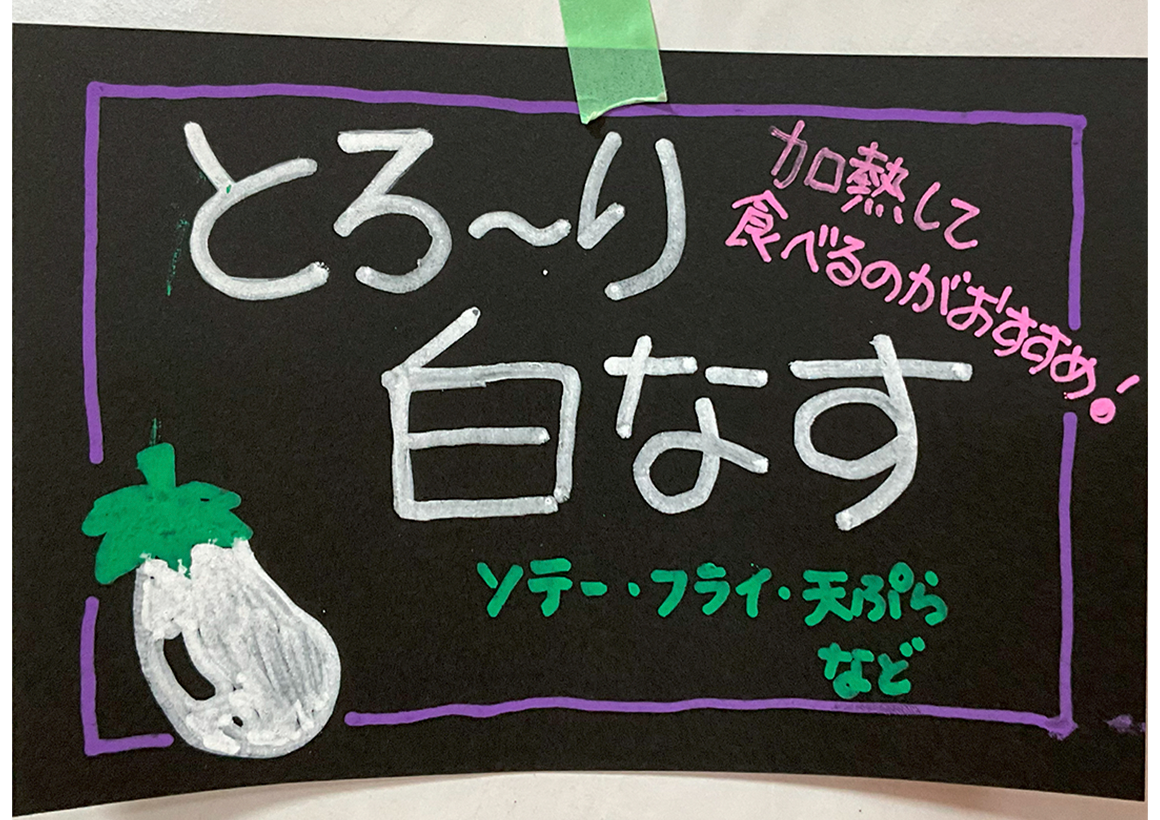 とろ〜り
白なす
加熱して
食べるのがおすすめ!
ソテー・フライ・天ぷら
など